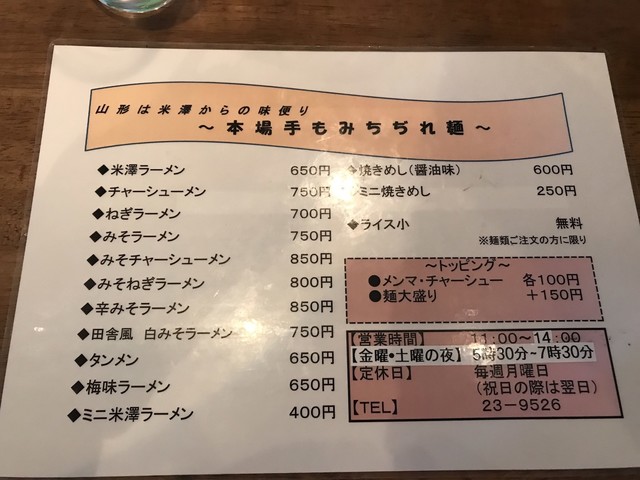 山形は米澤からの味便り
～本場手もみちぢれ麺～
◆米澤ラーメン 650円
◆チャーシューメン 750円
◆ねぎラーメン 700円
◆みそラーメン 750円
◆みそチャーシューメン 850円
◆みそねぎラーメン 800円
◆辛みそラーメン 850円
◆田舎風 白みそラーメン 750円
◆タンメン 650円
◆梅味ラーメン 650円
◆ミニ米澤ラーメン 400円
◆焼きめし(醤油味) 600円
◆ミニ焼きめし 250円
◆ライス小 無料
※麺類ご注文の方に限り
～トッピング～
●メンマ・チャーシュー 各100円
●麺大盛り +150円
【営業時間】 11:00～14:00
【金曜・土曜の夜】 5時30分~7時30分
【定休日】 毎週月曜日
(祝日の際は翌日)
【TEL】 23-9526